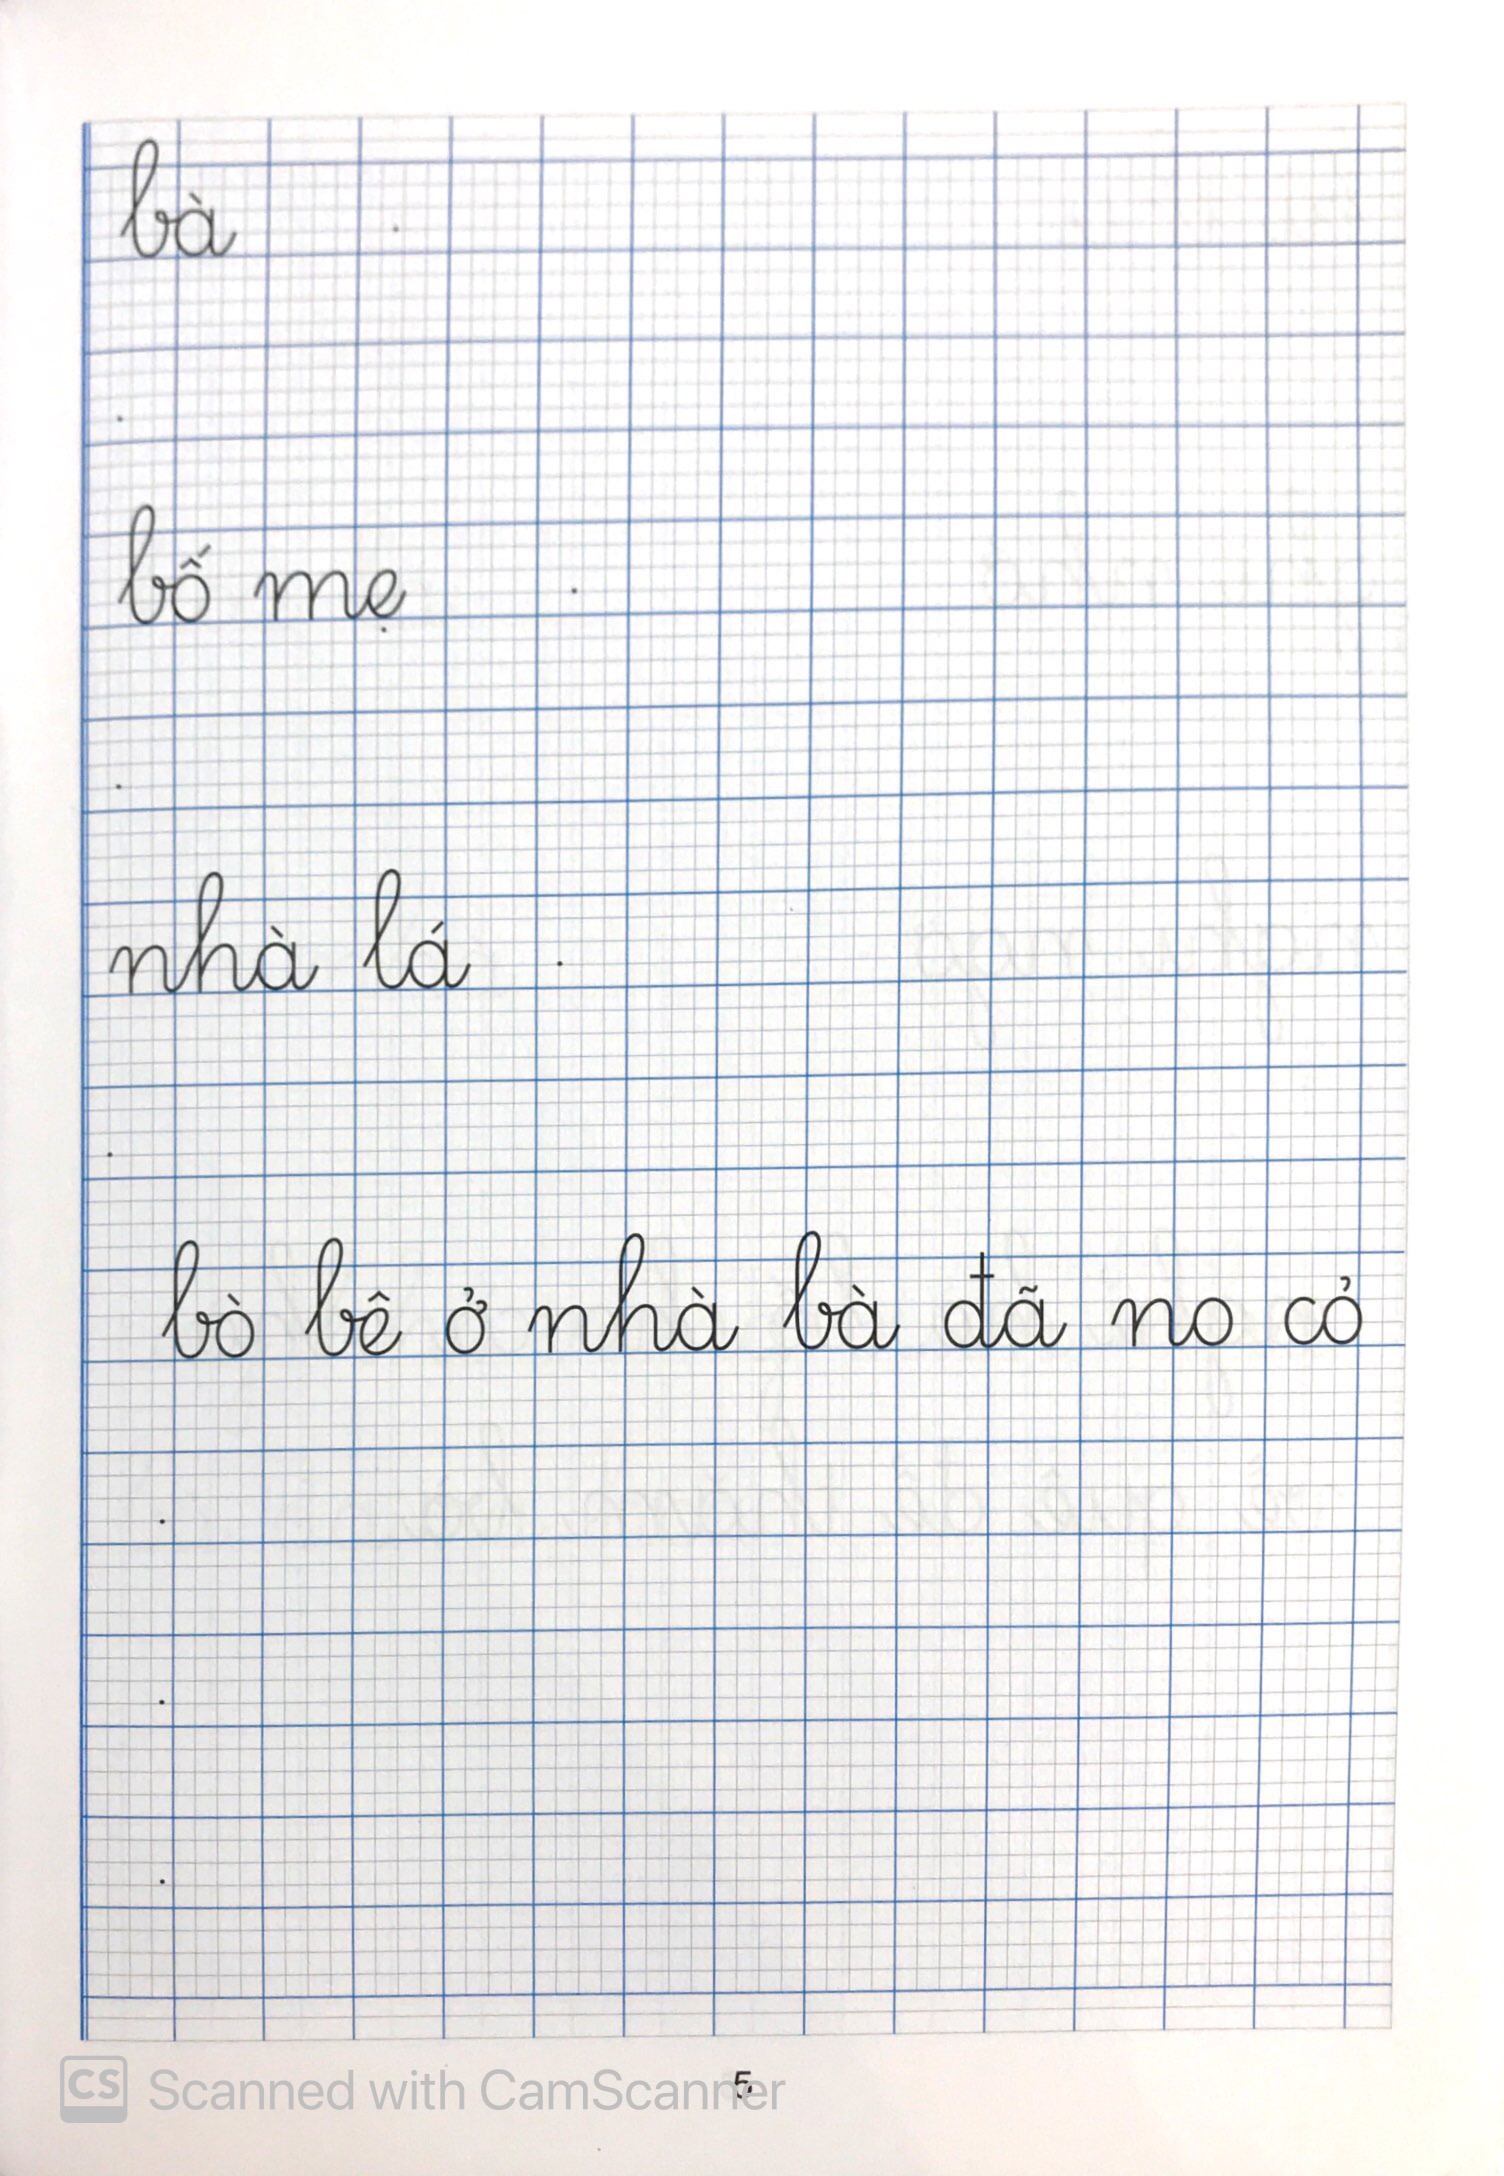 bà
bố mẹ
nhà lá
bò bê ở nhà bà đã no cỏ
5
CS Scanned with CamScanner